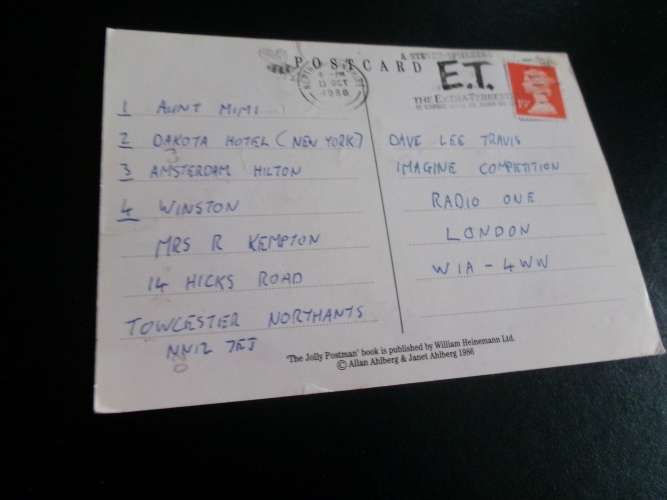 POSTCARD
E.T.
13 OCT
1988
19
THE EXTRA TERRESTRIAL
1 AUNT MIMI
2 DAKOTA HOTEL (NEW YORK)
3 AMSTERDAM HILTON
4 WINSTON
MRS R KEMPTON
14 HICKS ROAD
TOWCESTER NORTHANTS
NN12 7EJ
DAVE LEE TRAVIS
IMAGINE COMPETITION
RADIO ONE
LONDON
W1A - 4WW
'The Jolly Postman' book is published by William Heinemann Ltd.
© Allan Ahlberg & Janet Ahlberg 1986